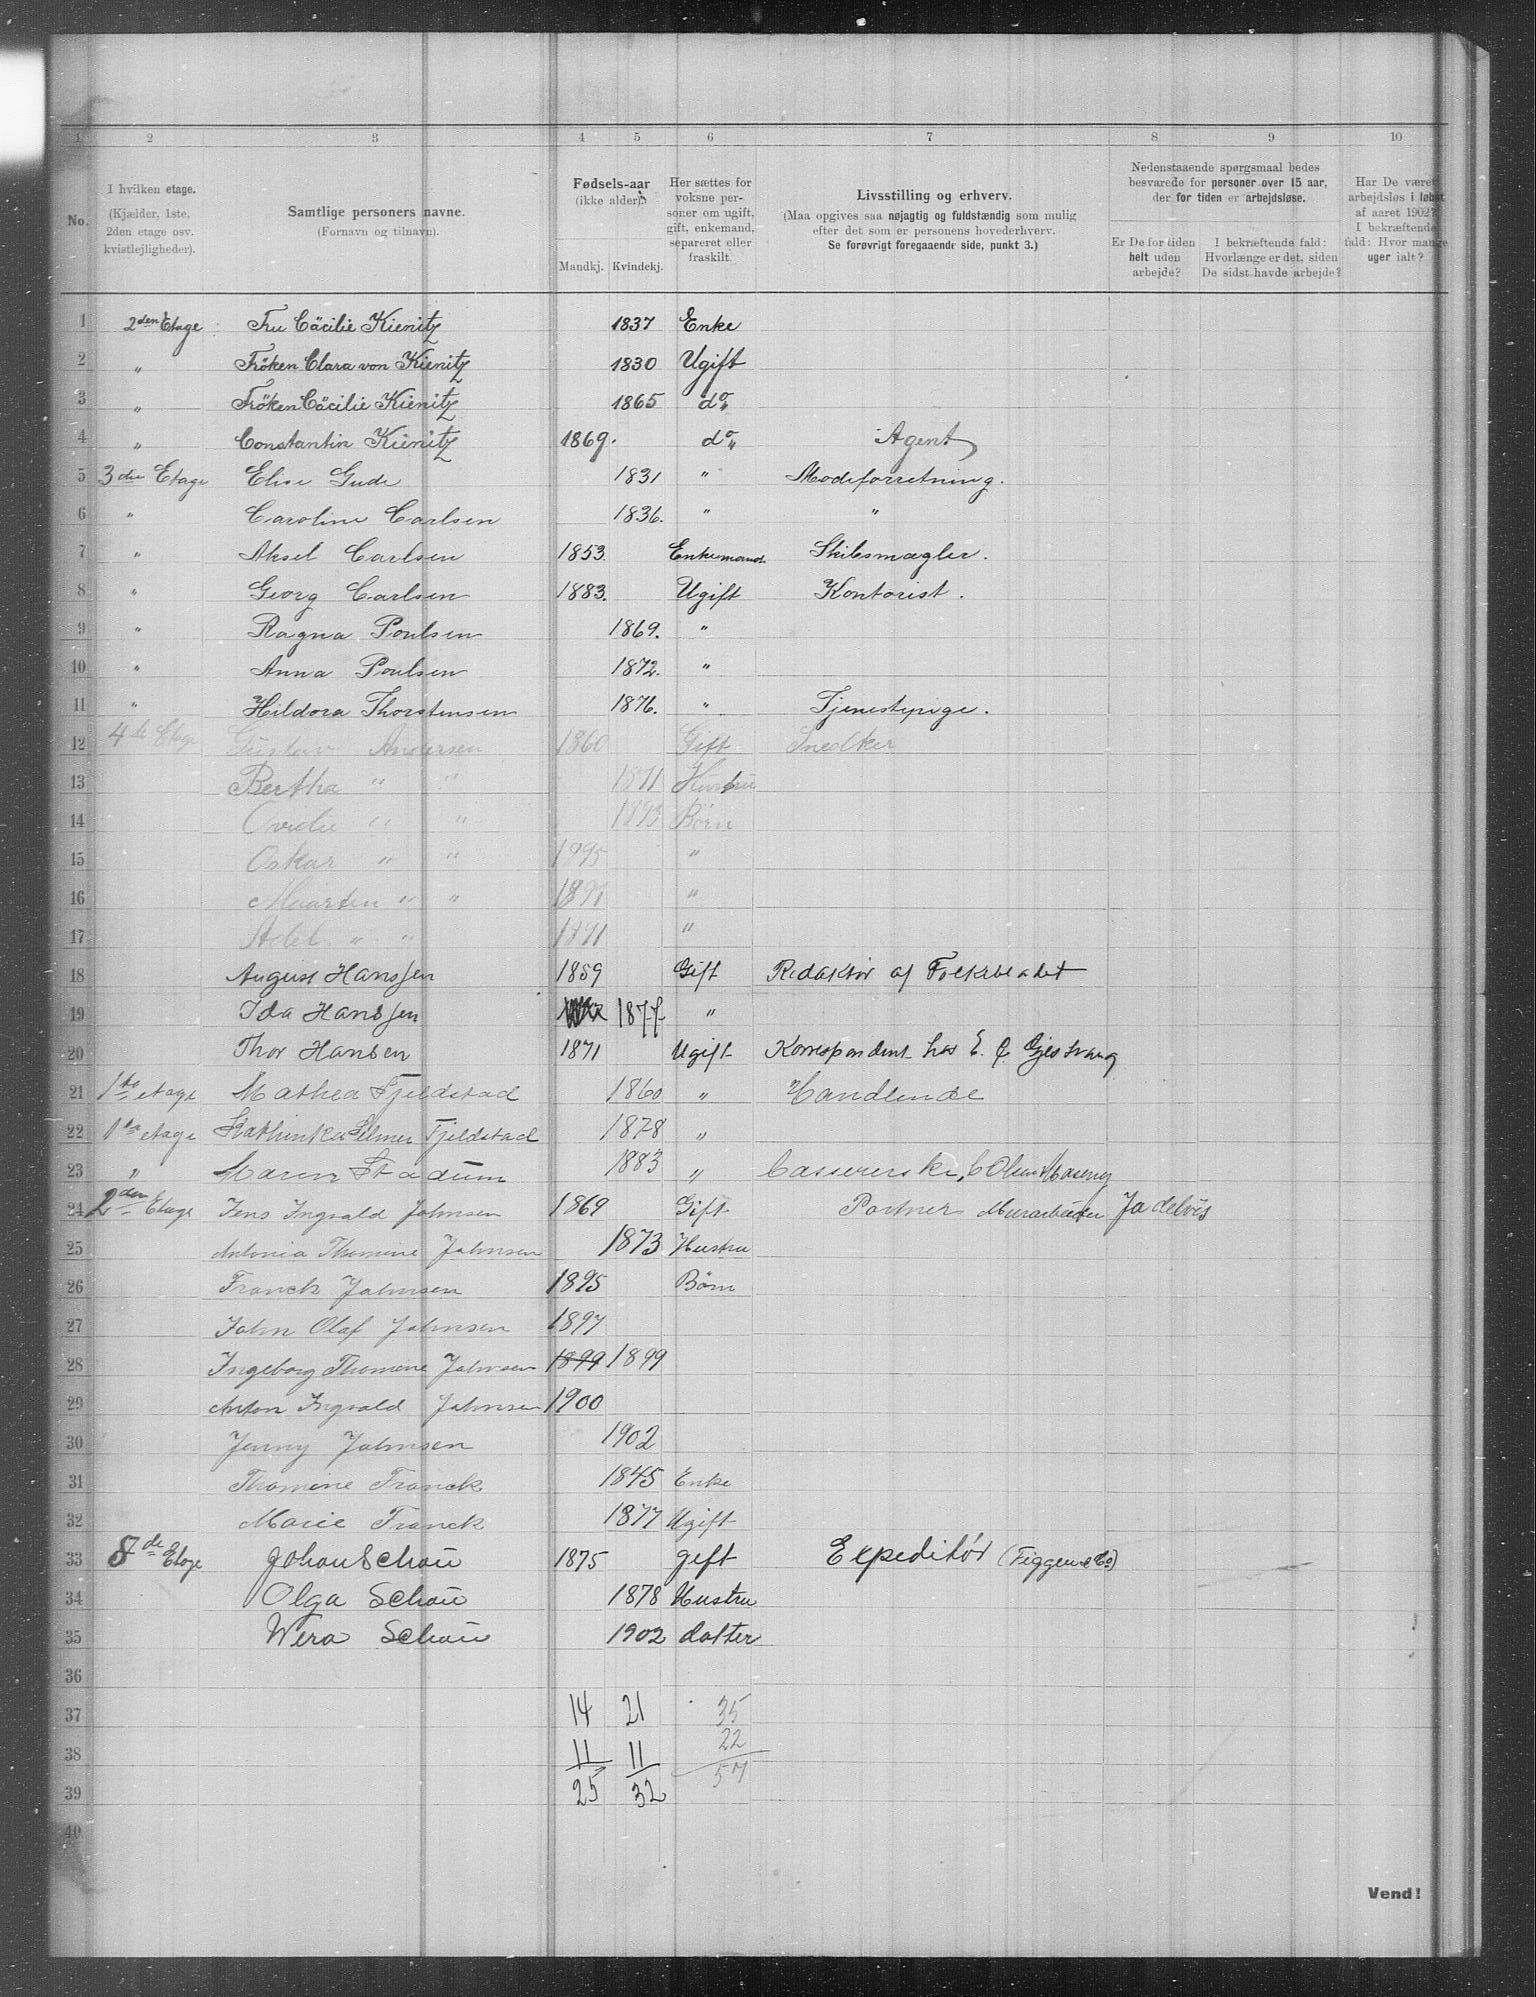 1 2 3 4 5 6 7 8 9 10
No.
I hvilken etage.
(Kjælder, 1ste,
2den etage osv.
kvistlejligheder).
Samtlige personers navne.
(Fornavn og tilnavn).
Fødsels-aar
(ikke alder).
Mandkj. Kvindekj.
Her sættes for
voksne per-
soner om ugift,
gift, enkemand,
separeret eller
fraskilt.
Livsstilling og erhverv.
(Maa opgives saa nøjagtig og fuldstændig som mulig
efter det som er personens hovederhverv.
Se forøvrigt foregaaende side, punkt 3.)
Nedenstaaende spørgsmaal bedes
besvarede for personer over 15 aar,
der for tiden er arbejdsløse.
Er De for tiden
helt uden
arbejde?
I bekræftende fald:
Hvorlænge er det, siden
De sidst havde arbejde?
Har De været
arbejdsløs i løbet
af aaret 1902?
I bekræftende
fald: Hvor mange
uger ialt?
1 2den Etage Fru Cäcilie Kienitz 1837 Enke
2 " Fröken Clara von Kienitz 1830 Ugift
3 " Fröken Cäcilie Kienitz 1865 do "
4 " Constantin Kienitz 1869. do " Agent
5 3die Etage Elise Gude 1831 " Modeforretning.
6 " Caroline Carlsen 1836. " "
7 " Aksel Carlsen 1853. Enkemand Skibsmægler.
8 " Georg Carlsen 1883. Ugift Kontorist.
9 " Ragna Poulsen 1869. "
10 " Anna Poulsen 1872. "
11 " Hildora Thorstensen 1876. " Tjenestepige.
12 4de Etage Gustav Andersen 1860 Gift Snedker
13 Bertha " " 1871 Hustru
14 " " 1893 Børn
15 Oskar " " 1895 "
16 Maarten " " 1897 "
17 " " 1891 "
18 August Hanssen 1859 Gift Redaktør af Folkebladet
19 Ida Hanssen 1877 "
20 Thor Hansen 1871 Ugift Korrespondent hos E. C. Gjestvang
21 1ste etage Mathea Fjeldstad 1860 " Handlende
22 1ste etage Kathinka Selmer Fjeldstad 1878 "
23 " Maren Stadum 1883 " Casserske,
24 2den Etage Jens Ingvald Johnsen 1869 Gift Portner Murarbeider
25 Antonia Thomine Johnsen 1873 Hustru
26 Franck Johnsen 1895 Børn
27 John Olaf Johnsen 1897
28 Ingeborg Thomine Johnsen 1899 1899
29 Anton Ingvald Johnsen 1900
30 Jenny Johnsen 1902
31 Thomine Franck 1845 Enke
32 Marie Franck 1877 Ugift
33 8de Etage Johan Schou 1875 gift Expeditør
34 Olga Schou 1878 Hustru
35 Wera Schou 1902 datter
36
37 14 21 35
38 11 11 22
39 25 32 57
40
Vend!